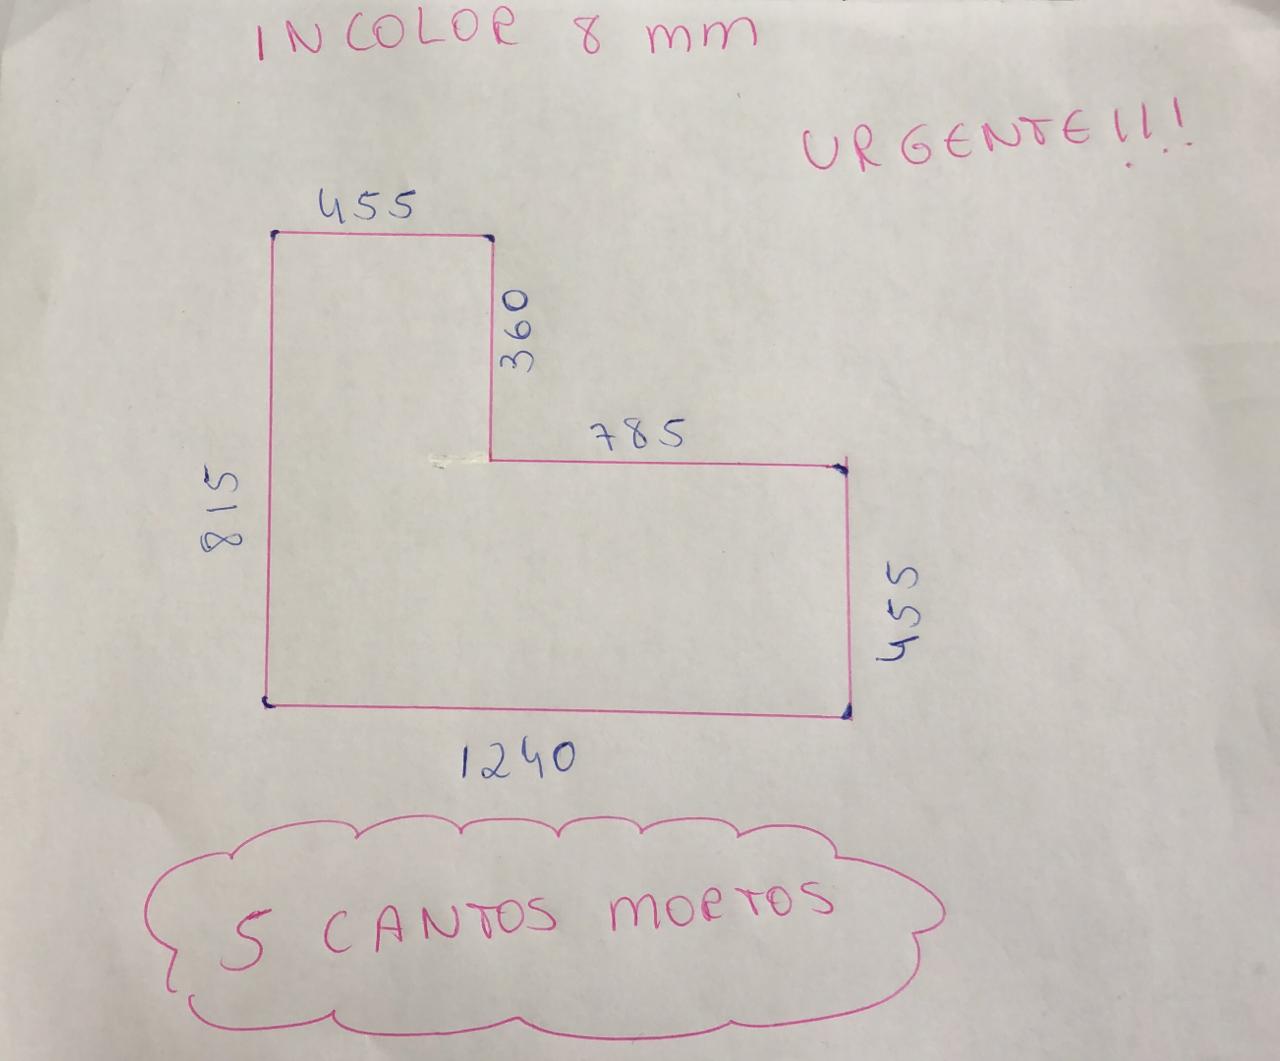 INCOLOR 8 mm
URGENTE!!!
455
360
785
815
455
1240
5 CANTOS MORTOS